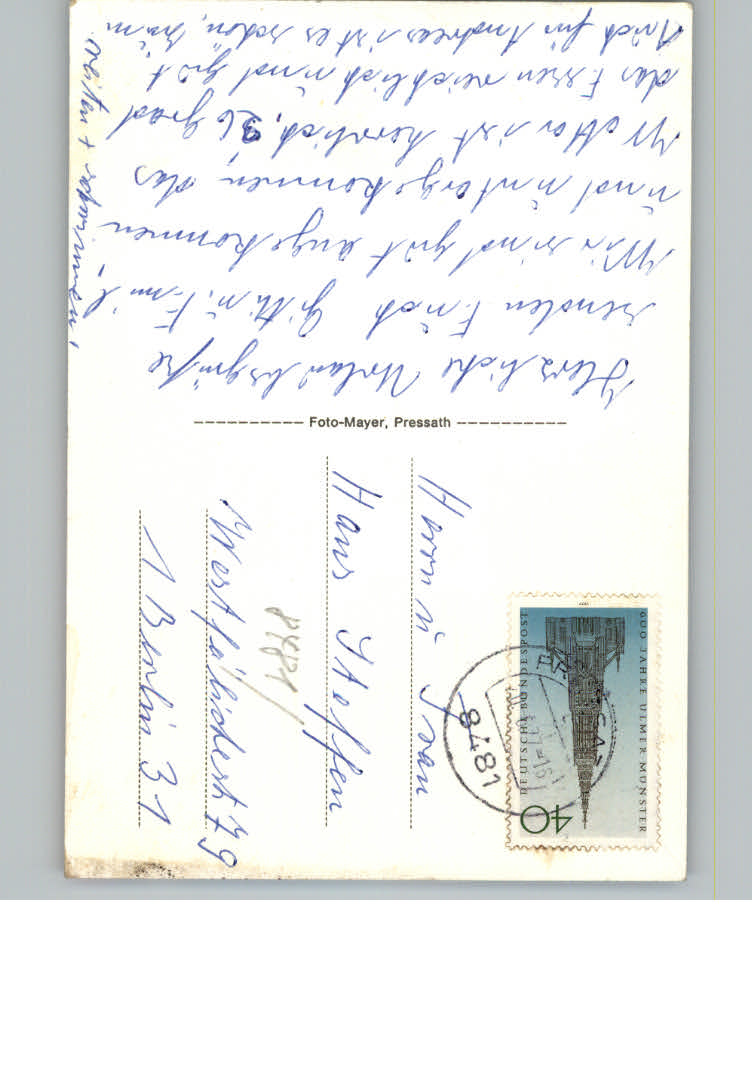 Herzliche Urlaubsgrüße
senden Euch Gitti u. Emil
Wir sind gut angekommen
und untergekommen, das
Wetter ist herrlich, 26 Grad
das Essen reichlich und gut
Auch für Andreas ist es schön,
reiten + schwimmen!
Foto-Mayer, Pressath
Herrn u. Frau
Hans Steffen
Westfälischestr 79
1 Berlin 31
8481
DEUTSCHE BUNDESPOST
600 JAHRE ULMER MÜNSTER
40